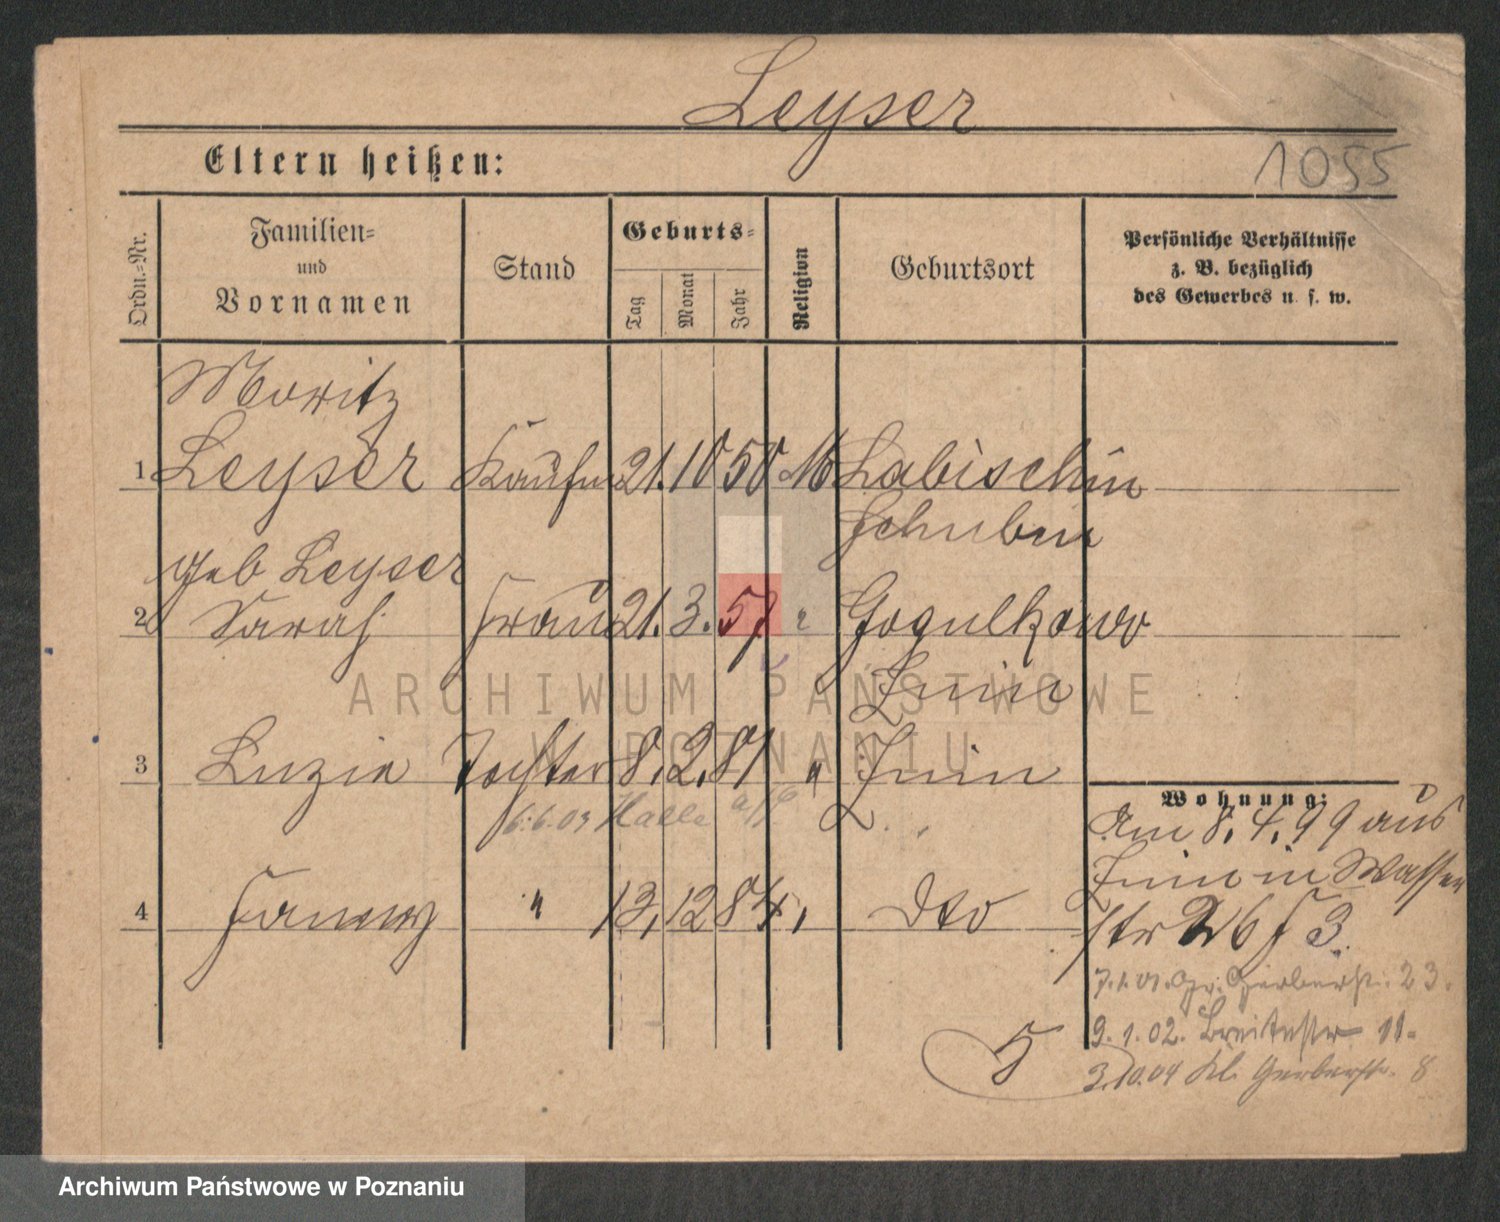 Leyser
Eltern heißen:
1055
Ordn.-Nr.
Familien-
und
Vornamen
Stand
Geburts-
Tag
Monat
Jahr
Religion
Geburtsort
Persönliche Verhältnisse
z. B. bezüglich
des Gewerbes u. s. w.
Moritz
1 Leyser Kaufm 21. 10 50 Labischin
Schubin
geb Leyser
2 Sarah Frau 21. 3. 57 Gogulkowo
Znin
3 Luzie Tochter 8. 2. 81 " Znin
6.6.03 Halle a/S
4 Fanny " 13. 12 84 dto
Wohnung:
Am 8. 4. 99 aus
Znin in Wasser
str 26
7.1.01. Gr. Gerberstr. 23.
9. 1. 02. Breitestr 11.
3.10.04 Kl. Gerberstr. 8
5
ARCHIWUM PAŃSTWOWE
W POZNANIU
Archiwum Państwowe w Poznaniu